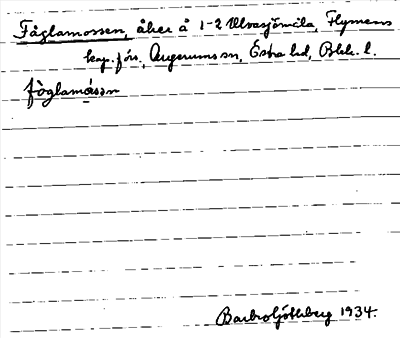 Fåglamossen, åker å 1-2 Ulvasjömåla, Flymens
kap. förs., Augerums sn, Östra hd, Blek. l.
fòglamåsən
Barbro Göthberg 1934.